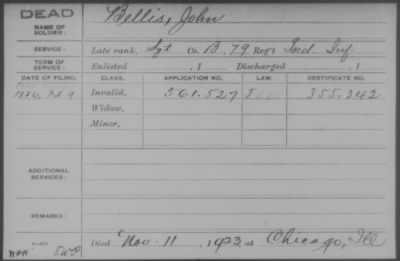 DEAD
NAME OF SOLDIER: Bellis, John
SERVICE: Late rank, Sgt Co. B, 79 Reg't Ind. Inf.
TERM OF SERVICE: Enlisted , 1 Discharged , 1
DATE OF FILING. CLASS. APPLICATION NO. LAW. CERTIFICATE NO.
1886, Feb. 9 Invalid, 561.527 355.342
Widow,
Minor,
ADDITIONAL SERVICES:
REMARKS:
Died Nov. 11, 1923, at Chicago, Ill